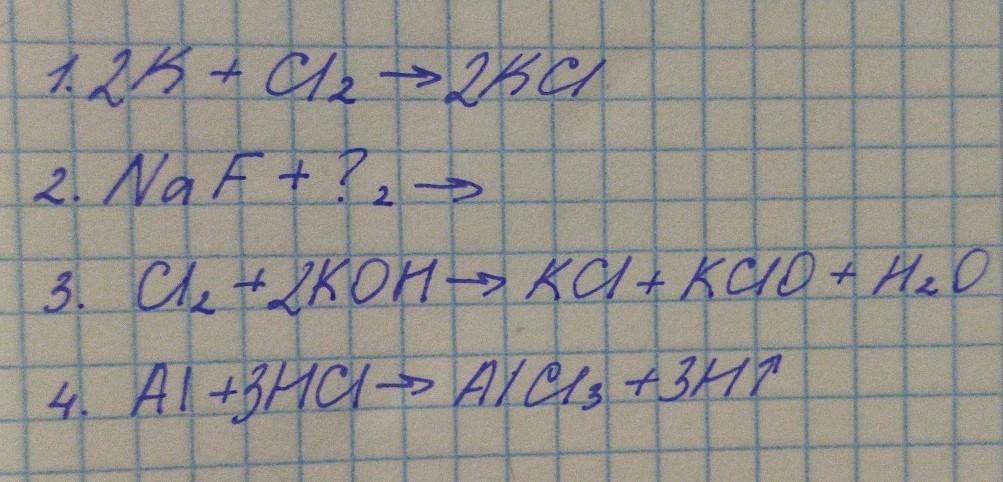 1. 2K + Cl₂ → 2KCl
2. NaF + ?₂ →
3. Cl₂ + 2KOH → KCl + KClO + H₂O
4. Al + 3HCl → AlCl₃ + 3H↑